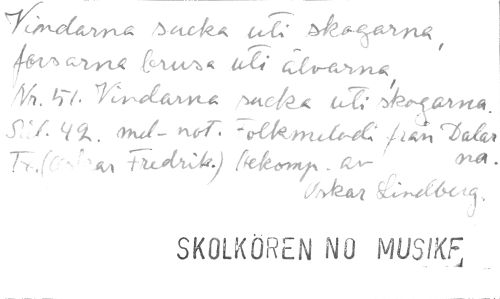 Vindarna sucka uti skogarna,
forsarna brusa uti älvarna,
Nr. 51. Vindarna sucka uti skogarna.
Sid. 42. mel-not. Folkmelodi från Dalar
Fredrik.) bekomp. av na.
Oskar Lindberg.
SKOLKÖREN NO MUSIKF